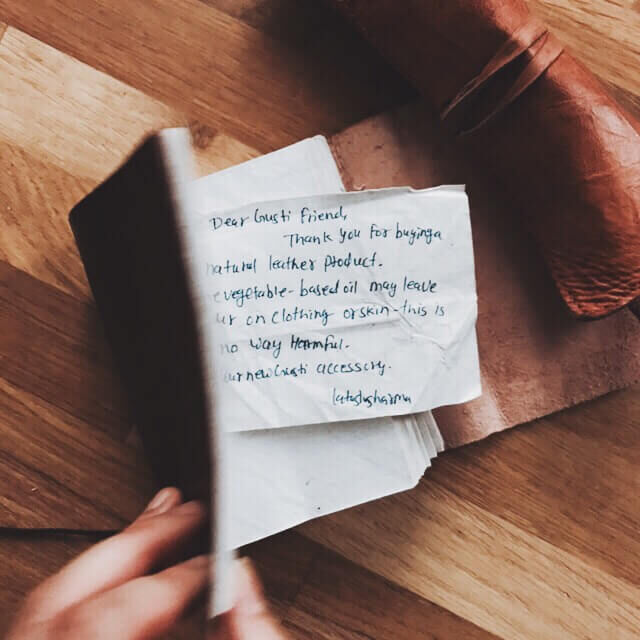 Dear Gusti Friend,
Thank you for buying a
natural leather product.
vegetable-based oil may leave
on clothing or skin - this is
no way Harmful.
new Gusti accessory.